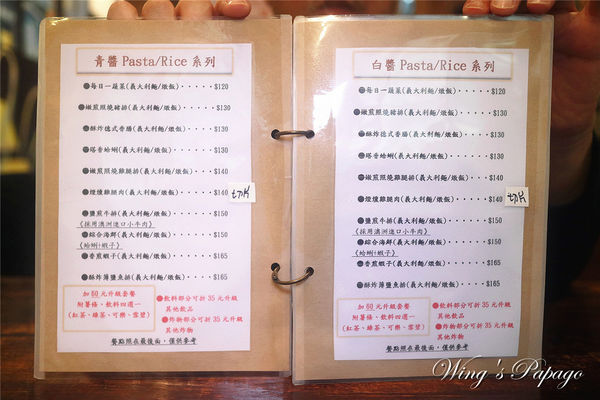 青醬 Pasta/Rice 系列
●每日一蔬菜(義大利麵/燉飯)‧‧‧‧‧‧$120
●嫩煎照燒豬排(義大利麵/燉飯)‧‧‧‧‧$130
●酥炸德式香腸(義大利麵/燉飯)‧‧‧‧‧$130
●塔香蛤蜊(義大利麵/燉飯)‧‧‧‧‧‧‧$130
●嫩煎照燒雞腿排(義大利麵/燉飯)‧‧‧‧$140
●煙燻雞腿肉(義大利麵/燉飯)‧‧‧‧‧‧$140
切片
●鹽煎牛排(義大利麵/燉飯)‧‧‧‧‧‧‧$150
《採用澳洲進口小牛肉》
●綜合海鮮(義大利麵/燉飯)‧‧‧‧‧‧‧$150
《蛤蜊+蝦子》
●香煎蝦子(義大利麵/燉飯)‧‧‧‧‧‧‧$165
●酥炸薄鹽魚排(義大利麵/燉飯)‧‧‧‧‧$165
加 60 元升級套餐
附薯條、飲料四選一
(紅茶、綠茶、可樂、雪碧)
●飲料部分可折 35 元升級
其他飲品
●炸物部分可折 35 元升級
其他炸物
餐點照在最後面，僅供參考
白醬 Pasta/Rice 系列
●每日一蔬菜(義大利麵/燉飯)‧‧‧‧‧‧$120
●嫩煎照燒豬排(義大利麵/燉飯)‧‧‧‧‧$130
●酥炸德式香腸(義大利麵/燉飯)‧‧‧‧‧$130
●塔香蛤蜊(義大利麵/燉飯)‧‧‧‧‧‧‧$130
●嫩煎照燒雞腿排(義大利麵/燉飯)‧‧‧‧$140
●煙燻雞腿肉(義大利麵/燉飯)‧‧‧‧‧‧$140
切片
●鹽煎牛排(義大利麵/燉飯)‧‧‧‧‧‧‧$150
《採用澳洲進口小牛肉》
●綜合海鮮(義大利麵/燉飯)‧‧‧‧‧‧‧$150
《蛤蜊+蝦子》
●香煎蝦子(義大利麵/燉飯)‧‧‧‧‧‧‧$165
●酥炸薄鹽魚排(義大利麵/燉飯)‧‧‧‧‧$165
加 60 元升級套餐
附薯條、飲料四選一
(紅茶、綠茶、可樂、雪碧)
●飲料部分可折 35 元升級
其他飲品
●炸物部分可折 35 元升級
其他炸物
餐點照在最後面，僅供參考
Wing's Papago